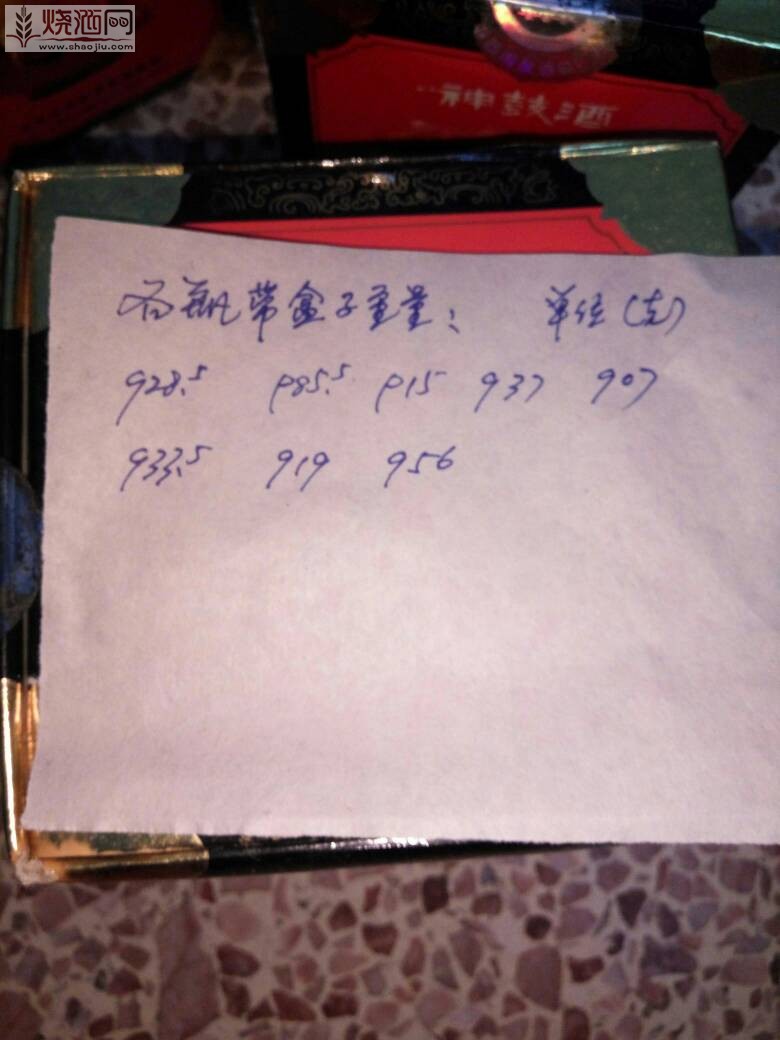 烧酒网
www.shaojiu.com
神鼓酒
各瓶带盒子重量: 单位(克)
928.5 985.5 915 937 907
933.5 919 956